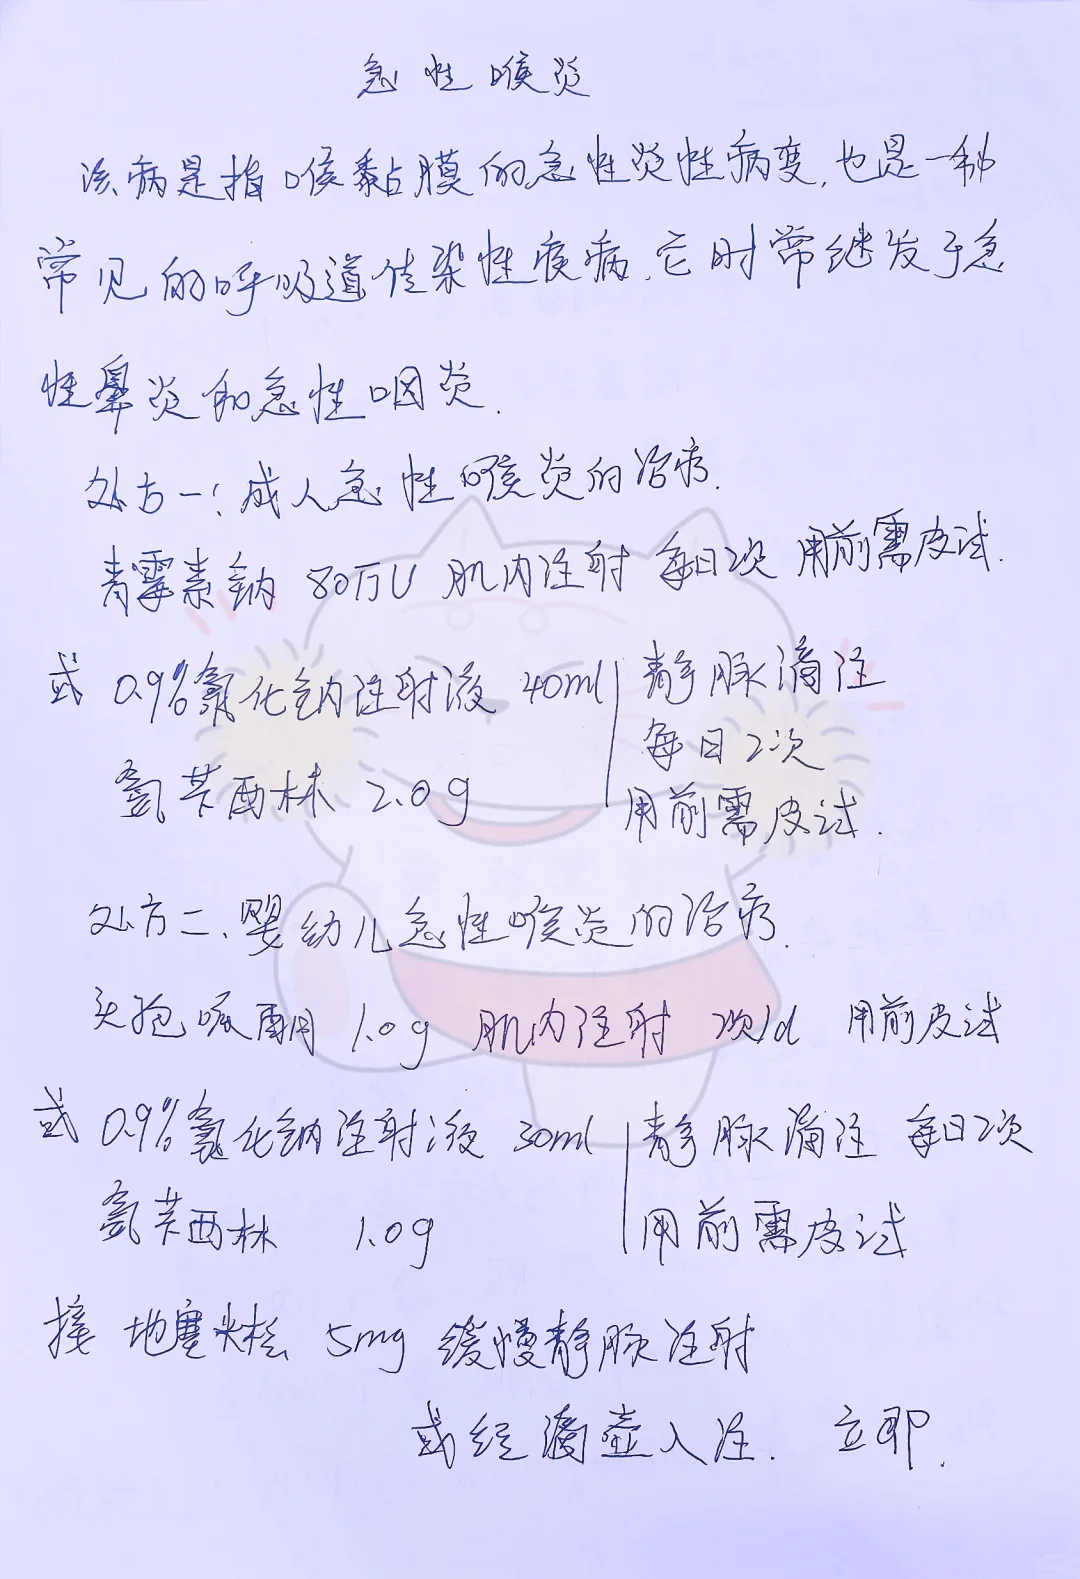 急性喉炎
该病是指喉黏膜的急性炎性病变,也是一种
常见的呼吸道传染性疾病,它时常继发于急
性鼻炎和急性咽炎.
处方一:成人急性喉炎的治疗.
青霉素钠 80万U 肌内注射 每日2次 用前需皮试.
或 0.9%氯化钠注射液 40ml 静脉滴注
每日2次
氨苄西林 2.0g 用前需皮试.
处方二、婴幼儿急性喉炎的治疗.
头孢哌酮 1.0g 肌内注射 2次/d 用前皮试
或 0.9%氯化钠注射液 30ml 静脉滴注 每日2次
氨苄西林 1.0g 用前需皮试
接 地塞米松 5mg 缓慢静脉注射
或经滴壶入注. 立即.